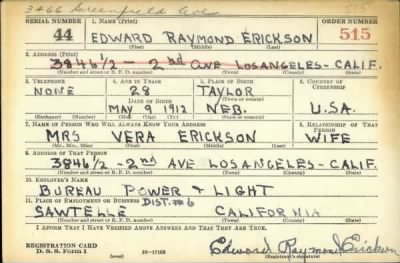 3466 Greenfield Ave
SERIAL NUMBER 1. NAME (Print) ORDER NUMBER
44 EDWARD RAYMOND ERICKSON 515
(First) (Middle) (Last)
2. ADDRESS (Print)
3846 1/2 – 2nd AVE LOS ANGELES - CALIF.
(Number and street or R. F. D. number) (Town) (County) (State)
3. TELEPHONE 4. AGE IN YEARS 5. PLACE OF BIRTH 6. COUNTRY OF CITIZENSHIP
NONE 28 TAYLOR
DATE OF BIRTH (Town or county)
MAY 9 1912 NEB. U.S.A.
(Exchange) (Number) (Mo.) (Day) (Yr.) (State or country)
7. NAME OF PERSON WHO WILL ALWAYS KNOW YOUR ADDRESS 8. RELATIONSHIP OF THAT PERSON
MRS VERA ERICKSON WIFE
(Mr., Mrs., Miss) (First) (Middle) (Last)
9. ADDRESS OF THAT PERSON
3846 1/2 - 2nd AVE LOS ANGELES - CALIF.
(Number and street or R. F. D. number) (Town) (County) (State)
10. EMPLOYER'S NAME
BUREAU POWER & LIGHT
11. PLACE OF EMPLOYMENT OR BUSINESS DIST. #6
SAWTELLE CALIFORNIA
(Number and street or R. F. D. number) (Town) (County) (State)
I AFFIRM THAT I HAVE VERIFIED ABOVE ANSWERS AND THAT THEY ARE TRUE.
REGISTRATION CARD
D. S. S. Form 1 (over) 16-17105 Edward Raymond Erickson
(Registrant's signature)